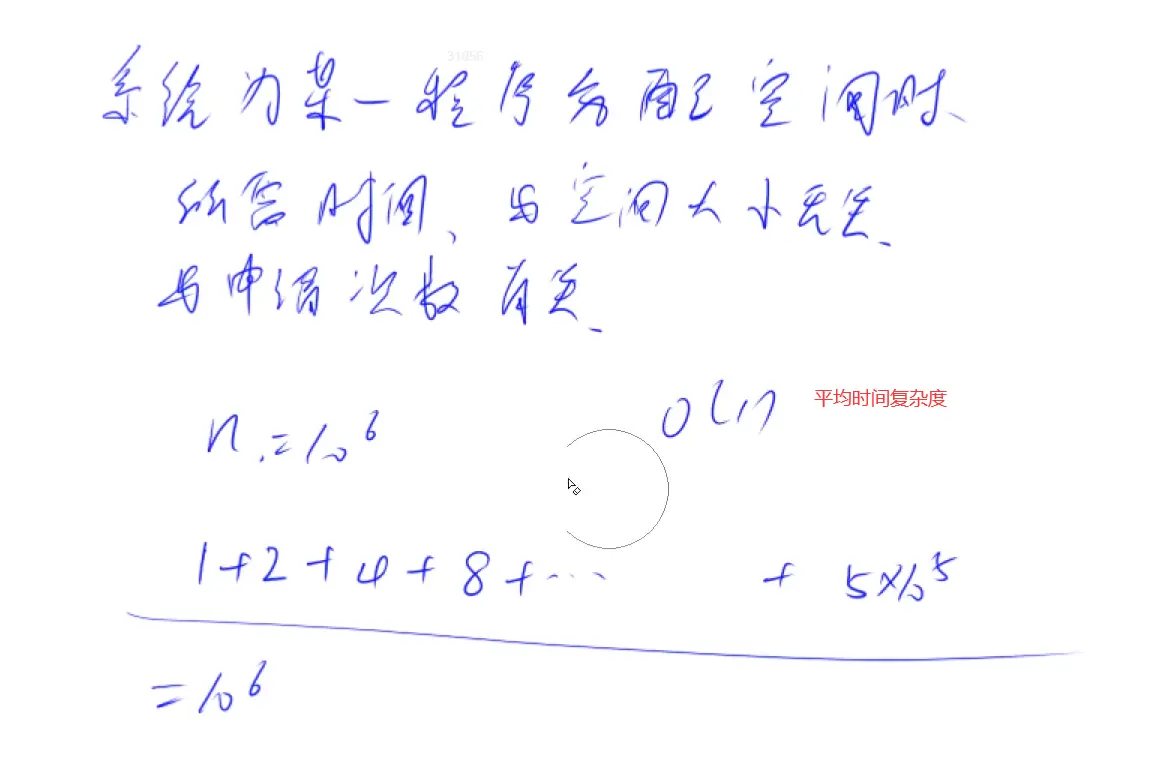 31856
系统为某一程序分配空间时、
所需时间、与空间大小无关、
与申请次数有关、
n = 10^6
O(1) 平均时间复杂度
1+2+4+8+… + 5×10^5
= 10^6